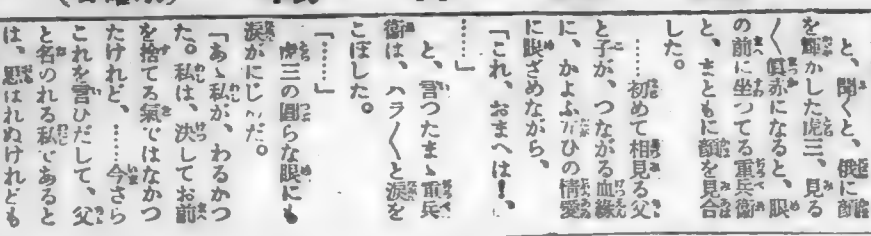 と、聞くと、俄に顏
を輝かした虎三、見る
〱眞赤になると、眼
の前に坐つてる重兵衞
と、まともに顏を見合
した。
……初めて相見る父
と子が、つながる血緣
に、かよふ　ひの情愛
に眼ざめながら、
「これ、おまへは！、
……」
と、言つたまゝ重兵
衞は、ハラ〱と淚を
こぼした。
「……」
虎三の圓らな眼にも
淚がにじ　だ。
「あゝ私が、わるかつ
た。私は、決してお前
を捨てる氣ではなかつ
たけれど、……今さら
これを言ひだして、父
と名のれる私であると
は、思はれぬけれども